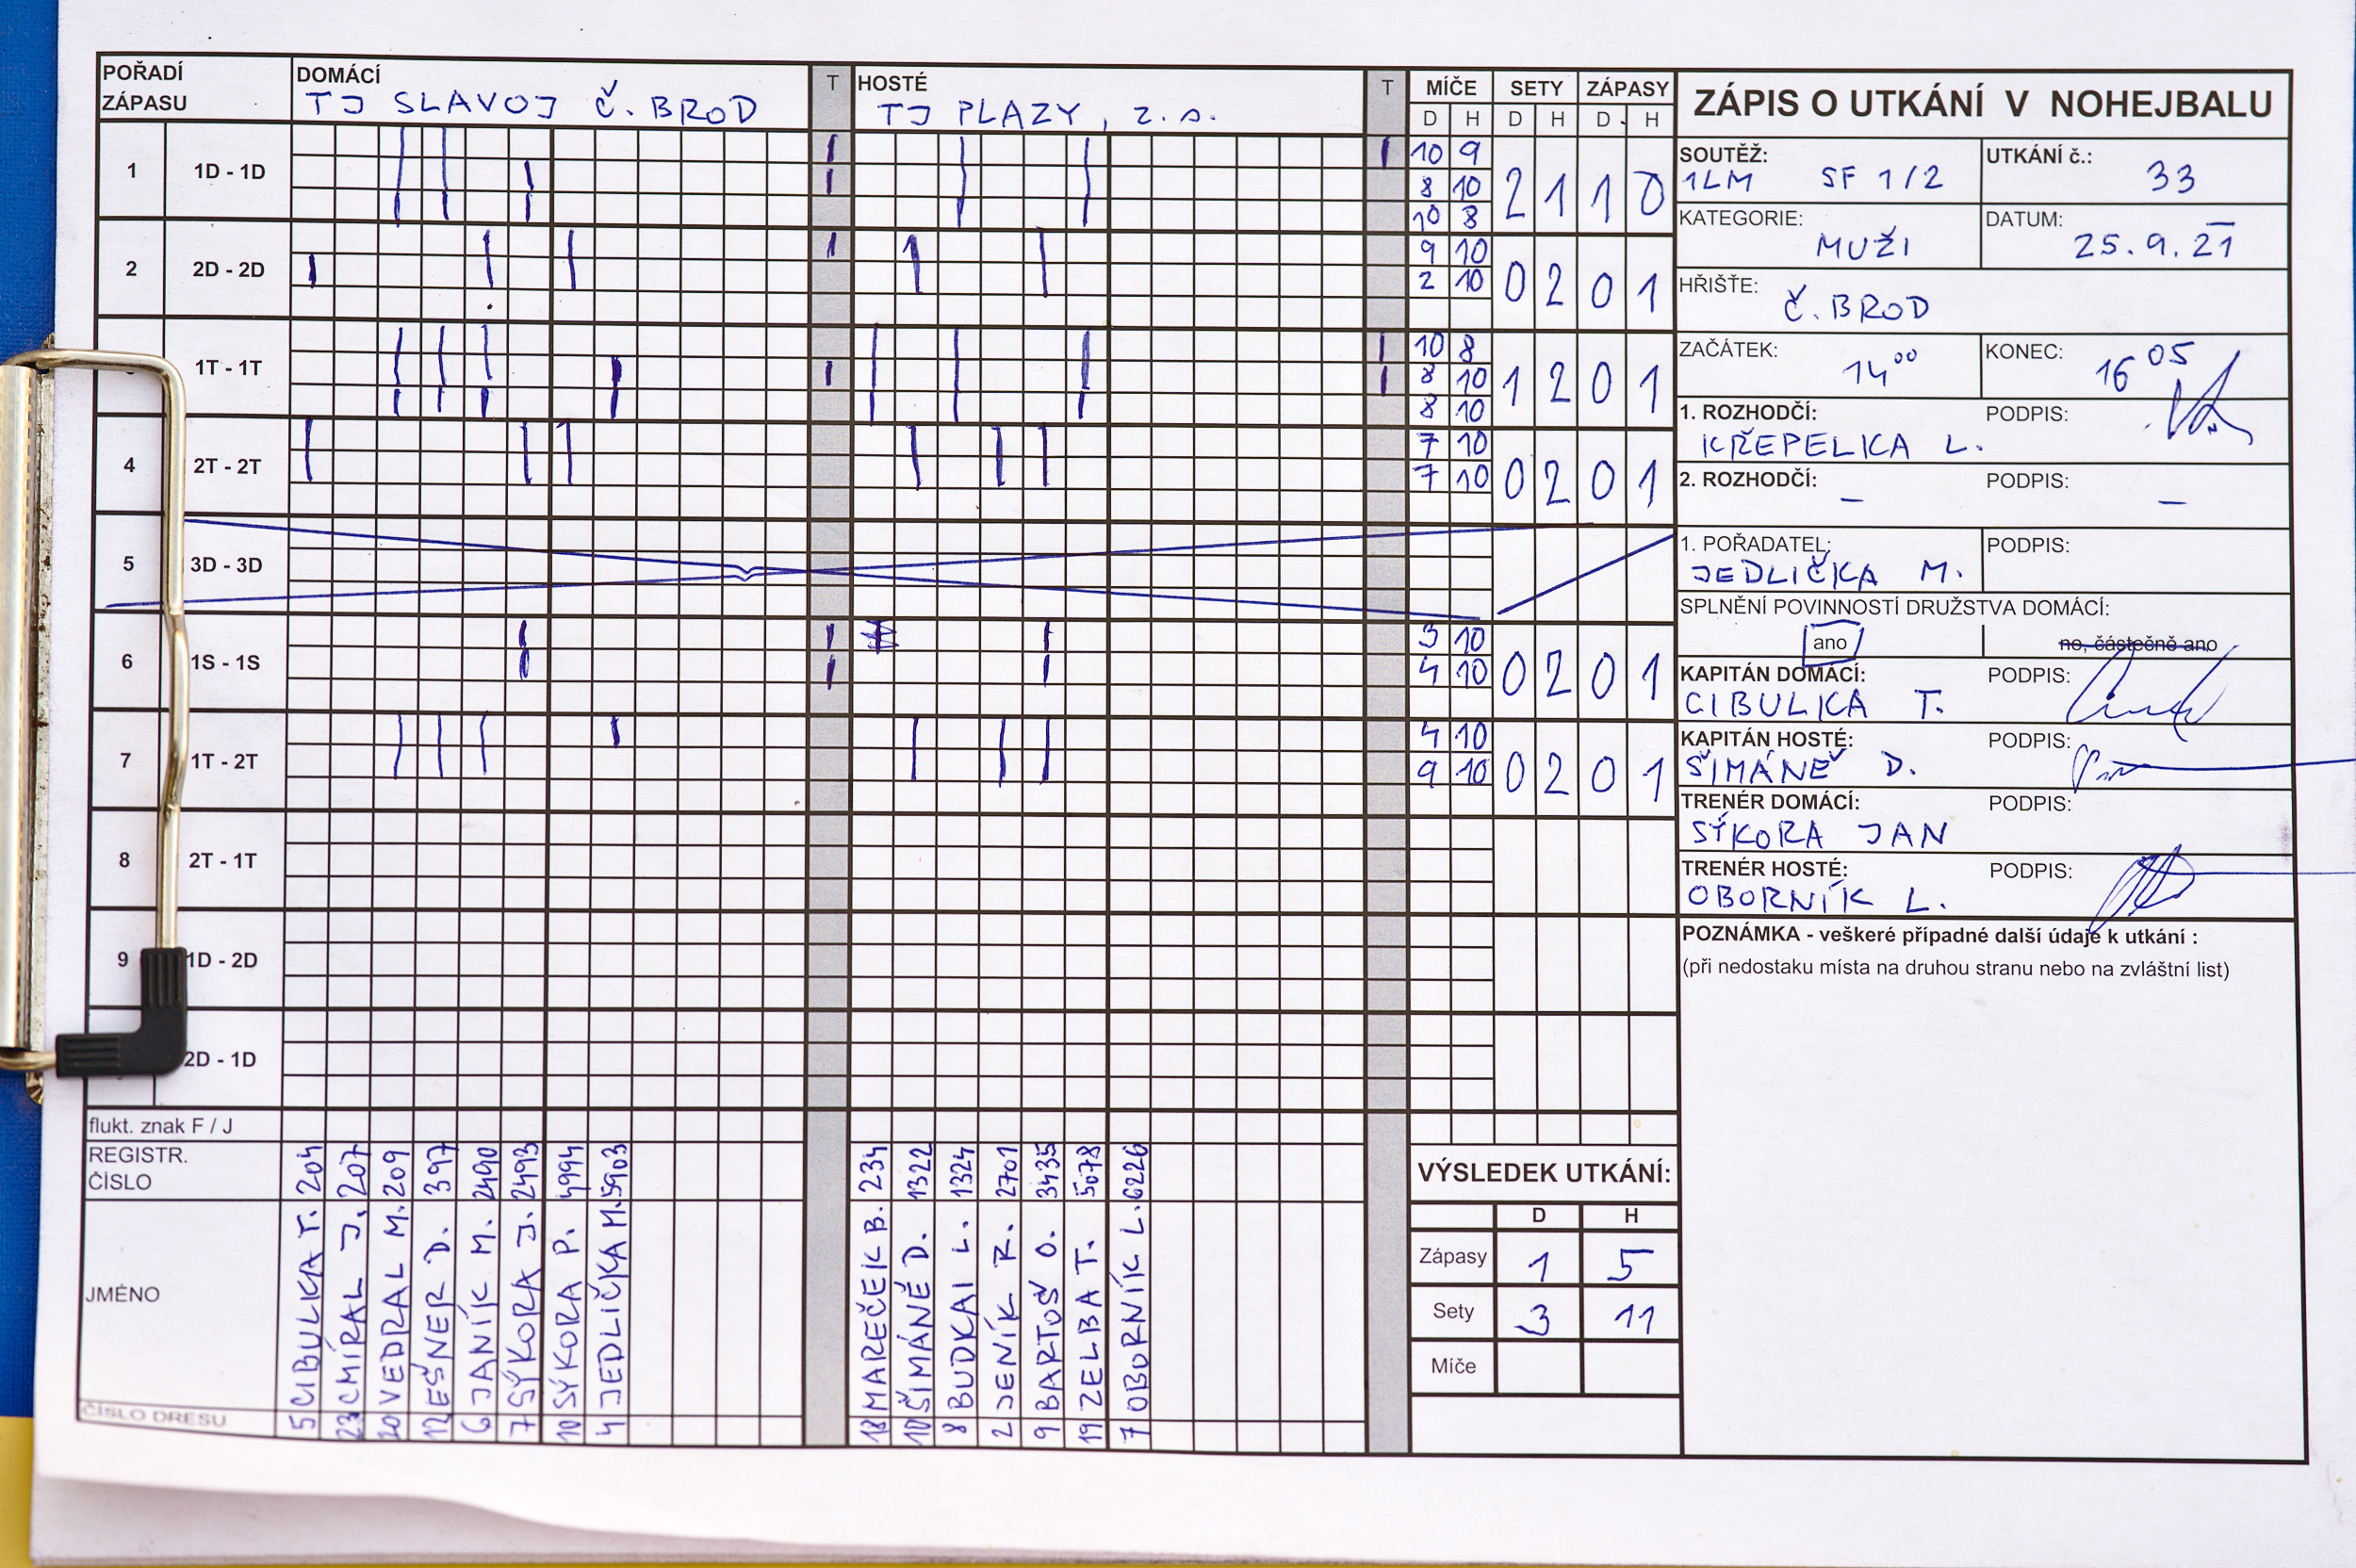 POŘADÍ ZÁPASU DOMÁCÍ T HOSTÉ T MÍČE SETY ZÁPASY
TJ SLAVOJ Č. BROD TJ PLAZY, z.s. D H D H D H
1 1D - 1D 10 9 2 1 1 0
8 10
10 8
2 2D - 2D 9 10 0 2 0 1
2 10
1T - 1T 10 8 1 2 0 1
8 10
8 10
4 2T - 2T 7 10 0 2 0 1
7 10
5 3D - 3D
6 1S - 1S 3 10 0 2 0 1
4 10
7 1T - 2T 4 10 0 2 0 1
9 10
8 2T - 1T
9 1D - 2D
2D - 1D
flukt. znak F / J
REGISTR. ČÍSLO 204 207 209 397 2490 2493 4994 5903 234 1322 1324 2701 3435 5078 6226
JMÉNO CIBULKA T. CMÍRAL J. VEDRAL M. EŠNER D. JANÍK M. SÝKORA J. SÝKORA P. JEDLIČKA M. MAREČEK B. ŠIMÁNĚ D. BUDKAI L. JENÍK R. BARTOŠ O. ZELBA T. OBORNÍK L.
ČÍSLO DRESU 5 23 20 12 6 7 10 4 18 10 8 2 9 19 7
VÝSLEDEK UTKÁNÍ:
D H
Zápasy 1 5
Sety 3 11
Míče
ZÁPIS O UTKÁNÍ V NOHEJBALU
SOUTĚŽ: 1LM SF 1/2 UTKÁNÍ č.: 33
KATEGORIE: MUŽI DATUM: 25.9.21
HŘIŠTĚ: Č. BROD
ZAČÁTEK: 14 00 KONEC: 16 05
1. ROZHODČÍ: PODPIS:
KŘEPELKA L.
2. ROZHODČÍ: – PODPIS: –
1. POŘADATEL: PODPIS:
JEDLIČKA M.
SPLNĚNÍ POVINNOSTÍ DRUŽSTVA DOMÁCÍ:
ano ne, částečně ano
KAPITÁN DOMÁCÍ: PODPIS:
CIBULKA T.
KAPITÁN HOSTÉ: PODPIS:
ŠIMÁNĚ D.
TRENÉR DOMÁCÍ: PODPIS:
SÝKORA JAN
TRENÉR HOSTÉ: PODPIS:
OBORNÍK L.
POZNÁMKA - veškeré případné další údaje k utkání :
(při nedostaku místa na druhou stranu nebo na zvláštní list)